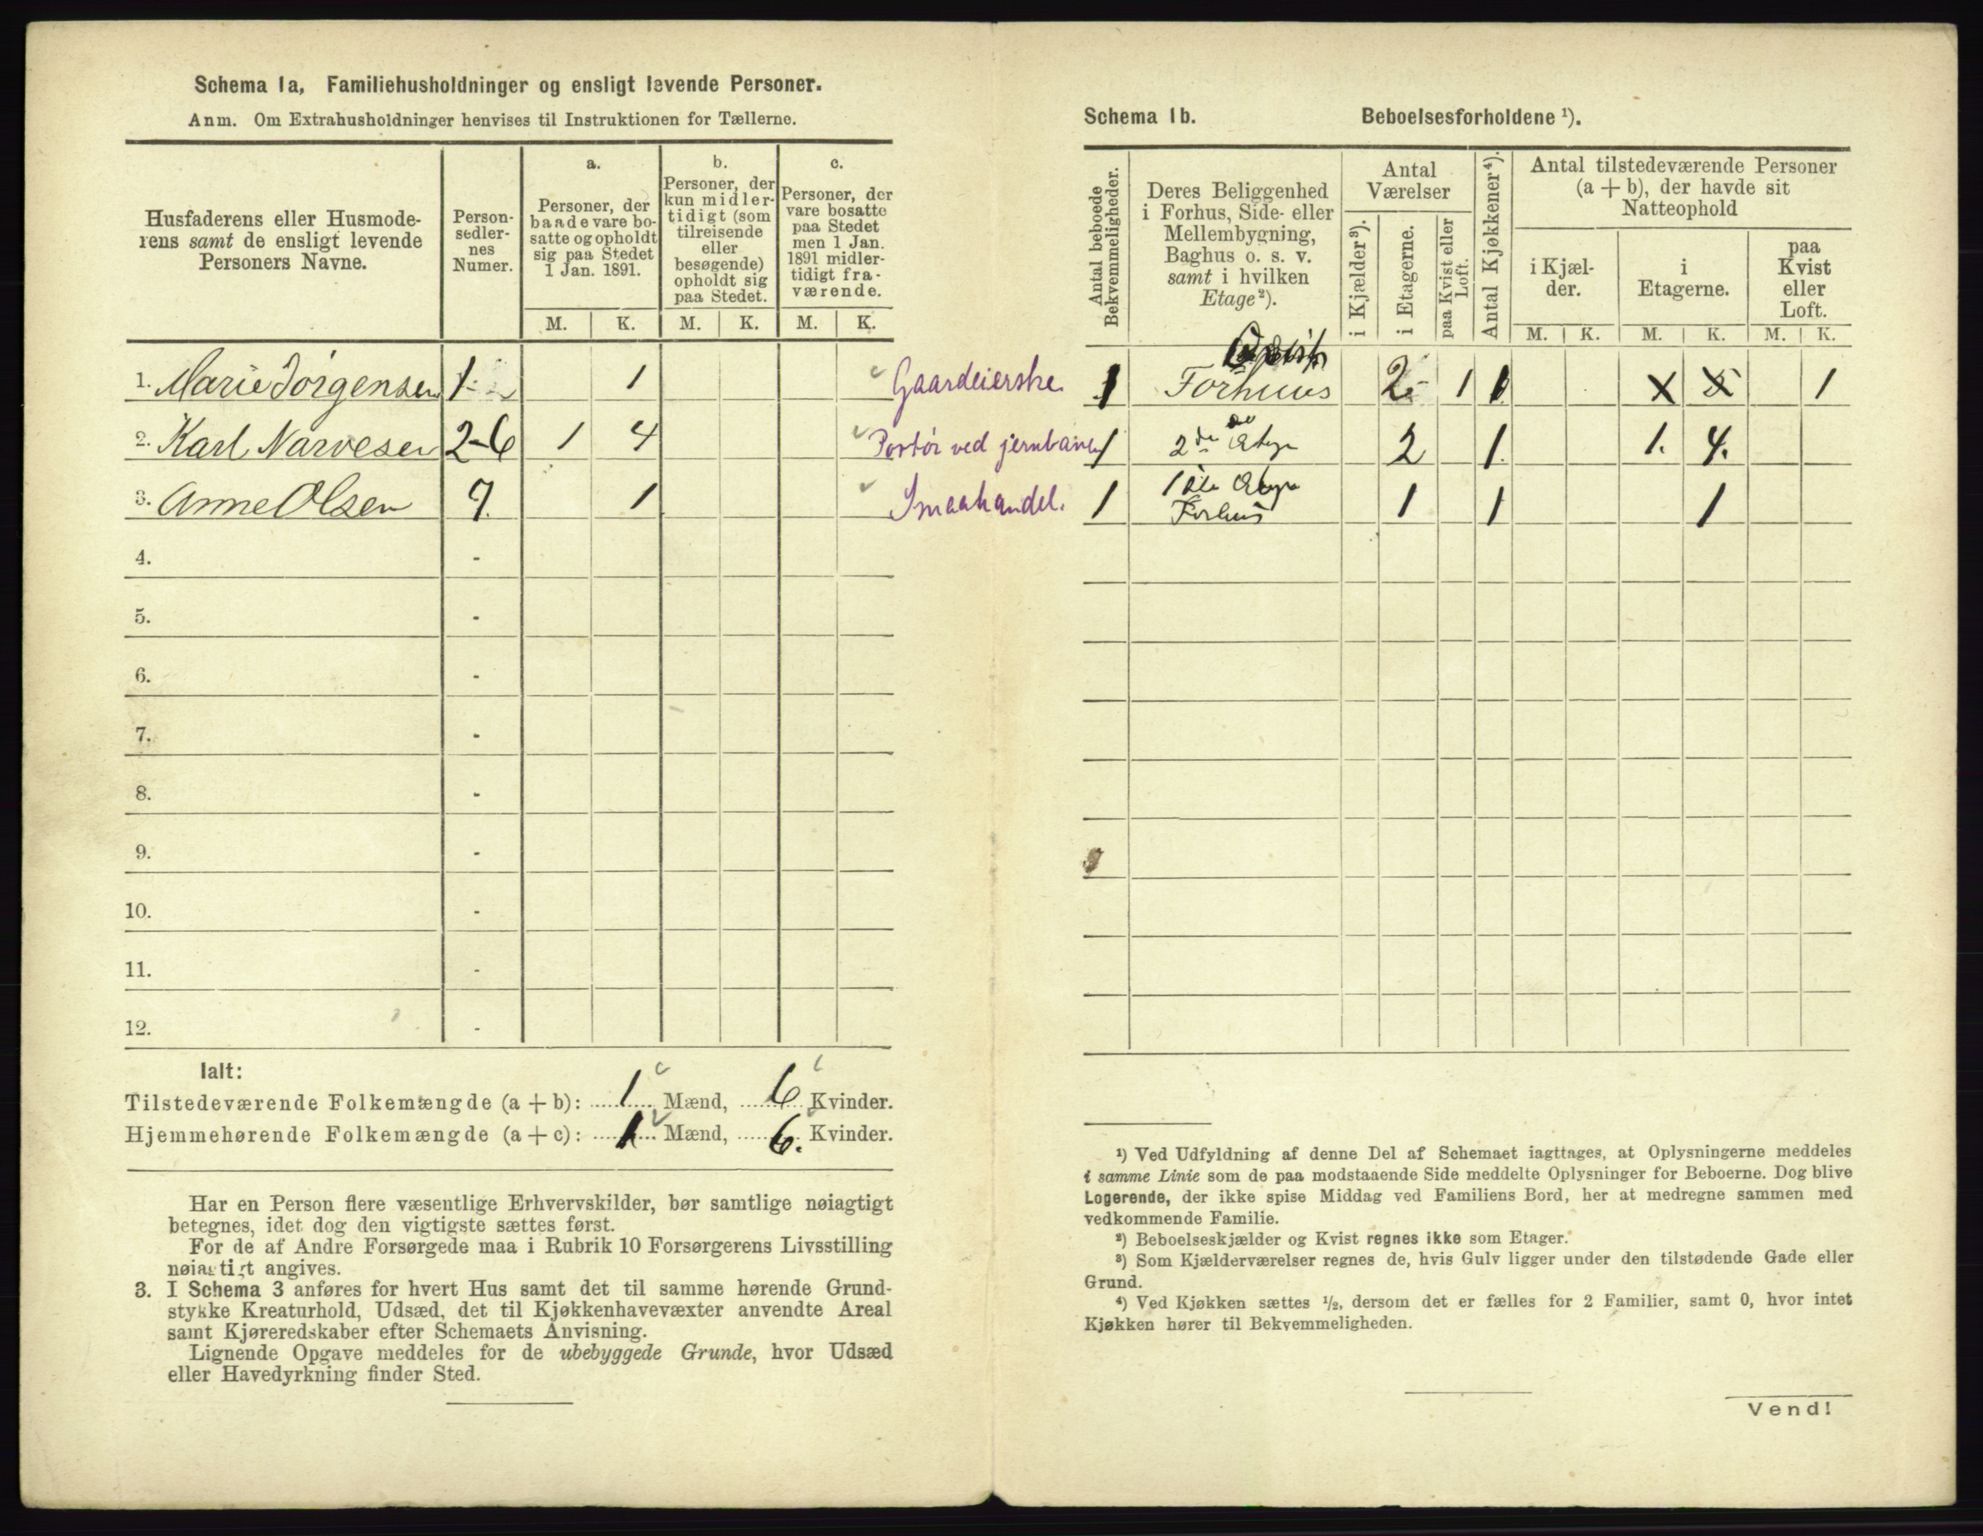 Schema 1a, Familiehusholdninger og ensligt levende Personer.
Anm. Om Extrahusholdninger henvises til Instruktionen for Tællerne.
Husfaderens eller Husmode-
rens samt de ensligt levende
Personers Navne.
Person-
sedler-
nes
Numer.
a.
Personer, der
baade vare bo-
satte og opholdt
sig paa Stedet
1 Jan. 1891.
b.
Personer, der
kun midler-
tidigt (som
tilreisende
eller
besøgende)
opholdt sig
paa Stedet.
c.
Personer, der
vare bosatte
paa Stedet
men 1 Jan.
1891 midler-
tidigt fra-
værende.
M. K. M. K. M. K.
1. Marie Jörgensen 1 1 Gaardeierske
2. Karl Narvesen 2-6 1 4 Portör ved jernbanen
3. Anne Olsen 7. 1 Smaahandel.
4. -
5. -
6. -
7. -
8. -
9. -
10. -
11. -
12. -
Ialt:
Tilstedeværende Folkemængde (a + b): 1 Mænd, 6 Kvinder.
Hjemmehørende Folkemængde (a + c): 1 Mænd, 6. Kvinder.
Har en Person flere væsentlige Erhvervskilder, bør samtlige nøiagtigt
betegnes, idet dog den vigtigste sættes først.
For de af Andre Forsørgede maa i Rubrik 10 Forsørgerens Livsstilling
nøiagtigt angives.
3. I Schema 3 anføres for hvert Hus samt det til samme hørende Grund-
stykke Kreaturhold, Udsæd, det til Kjøkkenhavevæxter anvendte Areal
samt Kjøreredskaber efter Schemaets Anvisning.
Lignende Opgave meddeles for de ubebyggede Grunde, hvor Udsæd
eller Havedyrkning finder Sted.
Schema 1b. Beboelsesforholdene ¹).
Antal beboede
Bekvemmeligheder.
Deres Beliggenhed
i Forhus, Side- eller
Mellembygning,
Baghus o. s. v.
samt i hvilken
Etage²).
Antal
Værelser
i Kjælder³).
i Etagerne.
paa Kvist eller
Loft.
Antal Kjøkkener⁴).
Antal tilstedeværende Personer
(a + b), der havde sit
Natteophold
i Kjæl-
der.
i
Etagerne.
paa
Kvist
eller
Loft.
M. K. M. K. M. K.
1 Forhuus 2 1 1 1
1 2den Etage 2 1. 1. 4.
1 1ste Etage 1 1 1
Forhus
¹) Ved Udfyldning af denne Del af Schemaet iagttages, at Oplysningerne meddeles
i samme Linie som de paa modstaaende Side meddelte Oplysninger for Beboerne. Dog blive
Logerende, der ikke spise Middag ved Familiens Bord, her at medregne sammen med
vedkommende Familie.
²) Beboelseskjælder og Kvist regnes ikke som Etager.
³) Som Kjælderværelser regnes de, hvis Gulv ligger under den tilstødende Gade eller
Grund.
⁴) Ved Kjøkken sættes ½, dersom det er fælles for 2 Familier, samt 0, hvor intet
Kjøkken hører til Bekvemmeligheden.
Vend!